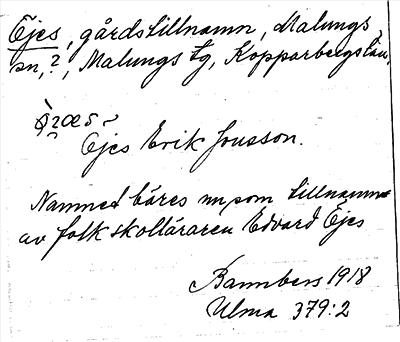 Ejes, gårdstillnamn, Malungs
sn,?, Malungs tg, Kopparbergs län.
Ejes Erik Jonsson.
Namnet bäres nu som tillnamn
av folkskolläraren Edvard Ejes
Bannbers 1918
Ulma 379:2